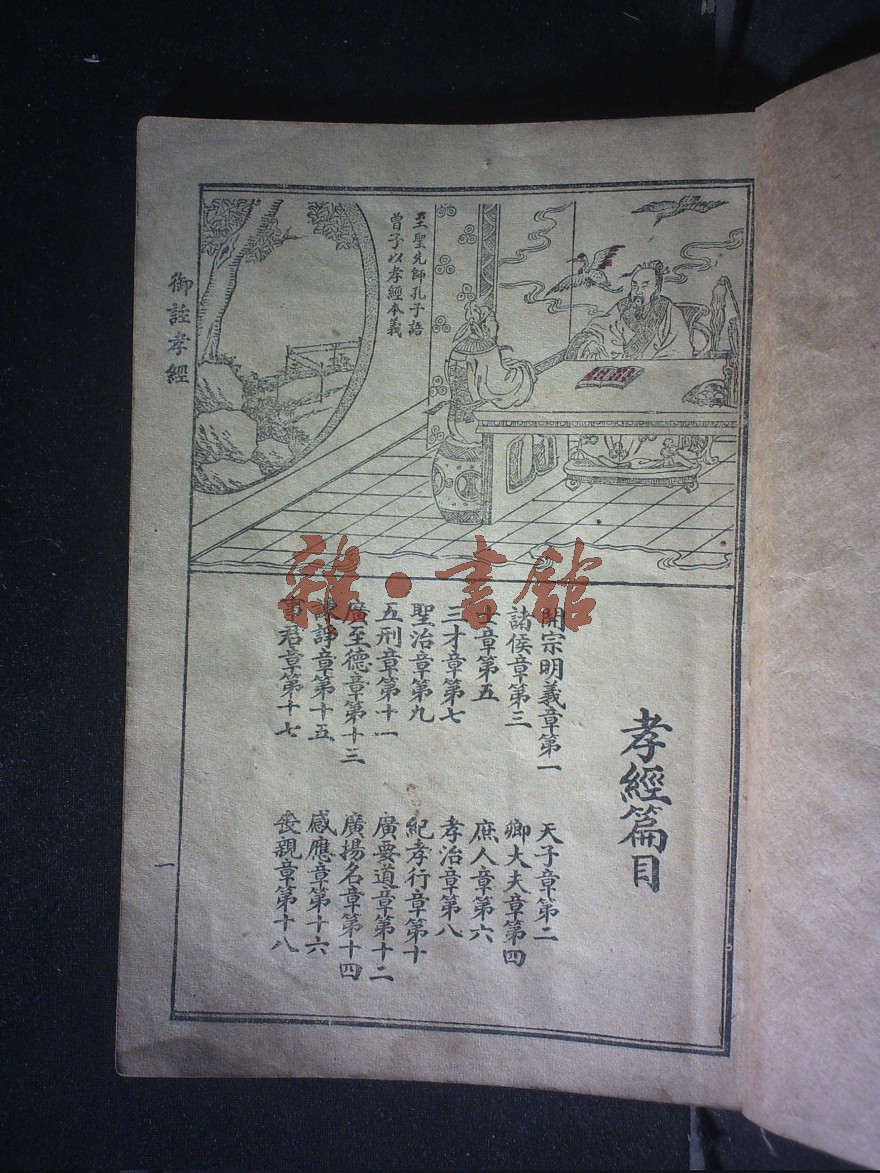 至聖先師孔子語
曾子以孝經本義
御註孝經
雜·書館
孝經篇目
開宗明義章第一
天子章第二
諸侯章第三
卿大夫章第四
士章第五
庶人章第六
三才章第七
孝治章第八
聖治章第九
紀孝行章第十
五刑章第十一
廣要道章第十二
廣至德章第十三
廣揚名章第十四
諫諍章第十五
感應章第十六
事君章第十七
喪親章第十八
一